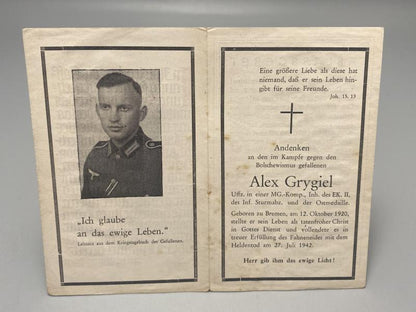 „Ich glaube
an das ewige Leben."
Letzter aus dem Kriegstagebuch des Gefallenen.
Eine größere Liebe als diese hat
niemand, daß er sein Leben hin-
gibt für seine Freunde.
Joh. 15, 13
Andenken
an den im Kampfe gegen den
Bolschewismus gefallenen
Alex Grygiel
Uffz. in einer MG.-Komp., Inh. des EK. II,
des Inf. Sturmabz. und der Ostmedaille.
Geboren zu Bremen, am 12. Oktober 1920,
stellte er sein Leben als tatenfroher Christ
in Gottes Dienst und vollendete es in
treuer Erfüllung des Fahneneides mit dem
Heldentod am 27. Juli 1942.
Herr gib ihm das ewige Licht!